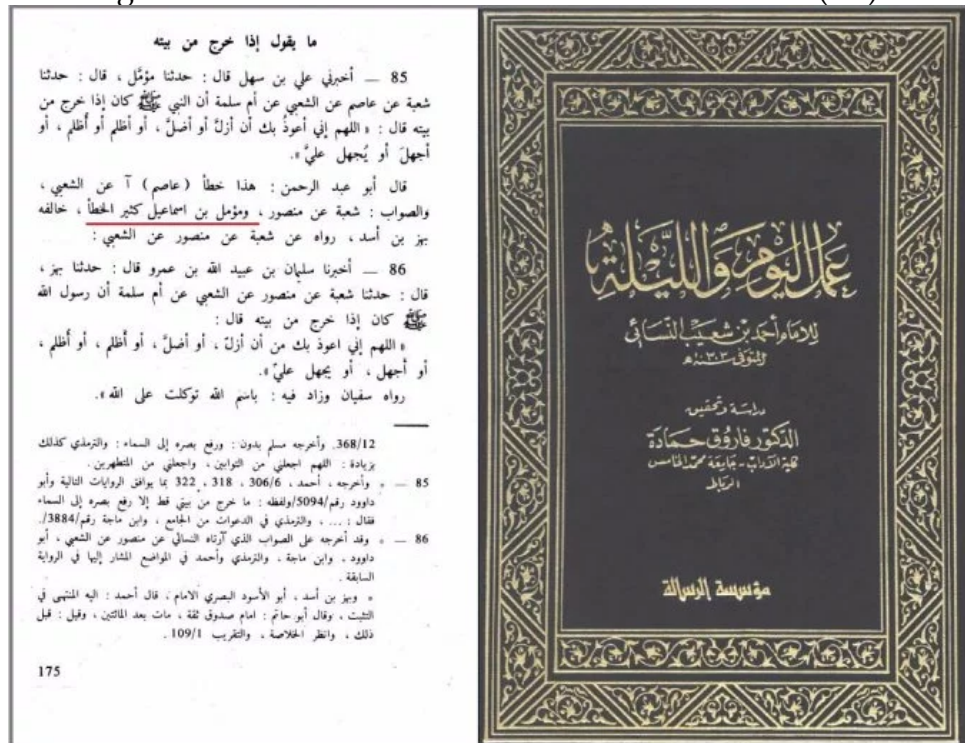 ما يقول إذا خرج من بيته
85 — أخبرني علي بن سهل قال : حدثنا مؤمَّل ، قال : حدثنا
شعبة عن عاصم عن الشعبي عن أم سلمة أن النبي ﷺ كان إذا خرج من
بيته قال : « اللهم إني أعوذُ بك أن أزلَّ أو أضلَّ ، أو أظلم أو أُظلم ، أو
أجهلَ أو يُجهل عليَّ ».
قال أبو عبد الرحمن : هذا خطأ (عاصم) آ عن الشعبي ،
والصواب : شعبة عن منصور ، ومؤمل بن اسماعيل كثير الخطأ ، خالفه
بهز بن أسد ، رواه عن شعبة عن منصور عن الشعبي :
86 — أخبرنا سليمان بن عبيد الله بن عمرو قال : حدثنا بهز ،
قال : حدثنا شعبة عن منصور عن الشعبي عن أم سلمة أن رسول الله
ﷺ كان إذا خرج من بيته قال :
« اللهم إني اعوذ بك من أن أزلّ ، أو أضلَّ ، أو أظلم ، أو أُظلم ،
أو أجهل ، أو يجهل عليّ ».
رواه سفيان وزاد فيه : باسم الله توكلت على الله ».
368/12. وأخرجه مسلم بدون : ورفع بصره إلى السماء : والترمذي كذلك
بزيادة : اللهم اجعلني من التوابين ، واجعلني من المتطهرين.
85 — • وأخرجه ، أحمد ، 306/6 ، 318 ، 322 بما يوافق الروايات التالية وأبو
داوود رقم/5094/ولفظه : ما خرج من بيتي قط إلا رفع بصره إلى السماء
فقال : ... ، والترمذي في الدعوات من الجامع ، وابن ماجة رقم/3884/.
86 — • وقد أخرجه على الصواب الذي آرتاه النسائي عن منصور عن الشعبي ، أبو
داوود ، وابن ماجة ، والترمذي وأحمد في المواضع المشار إليها في الرواية
السابقة .
• وبهز بن أسد ، أبو الأسود البصري الامام ، قال أحمد : اليه المنتهى في
التثبت ، وقال أبو حاتم : امام صدوق ثقة ، مات بعد المائتين ، وقيل : قبل
ذلك ، وانظر الخلاصة ، والتقريب 109/1 .
175
عمل اليوم والليلة
للامام أحمد بن شعيب النسائي
المتوفى ٣٠٣ هـ
دراسة وتحقيق
الدكتور فاروق حمادة
كلية الآداب - جامعة محمد الخامس
الرباط
مؤسسة الرسالة